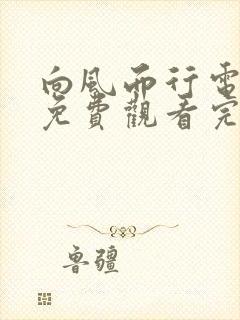 向風而行電
免費觀看完
魯疆